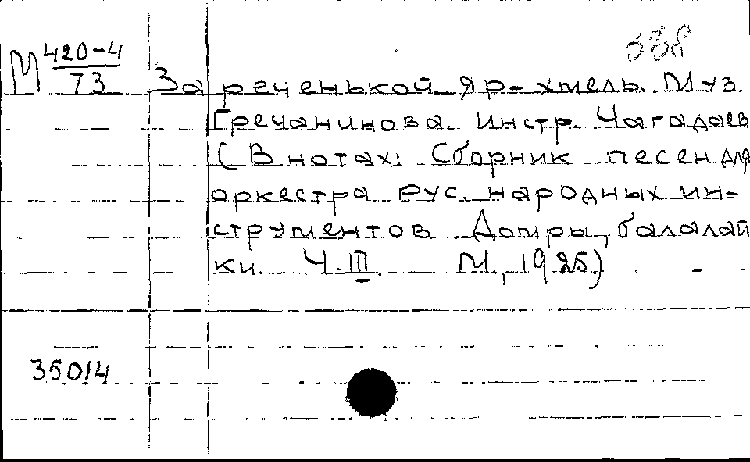 М 420-4
73
За реченькой яр-хмель. Муз.
Гречанинова. Инстр. Чагадаев
(В нотах: Сборник песен для
оркестра рус. народных ин-
струментов. Домры, балалай
ки. Ч. III. М., 1925)
35014